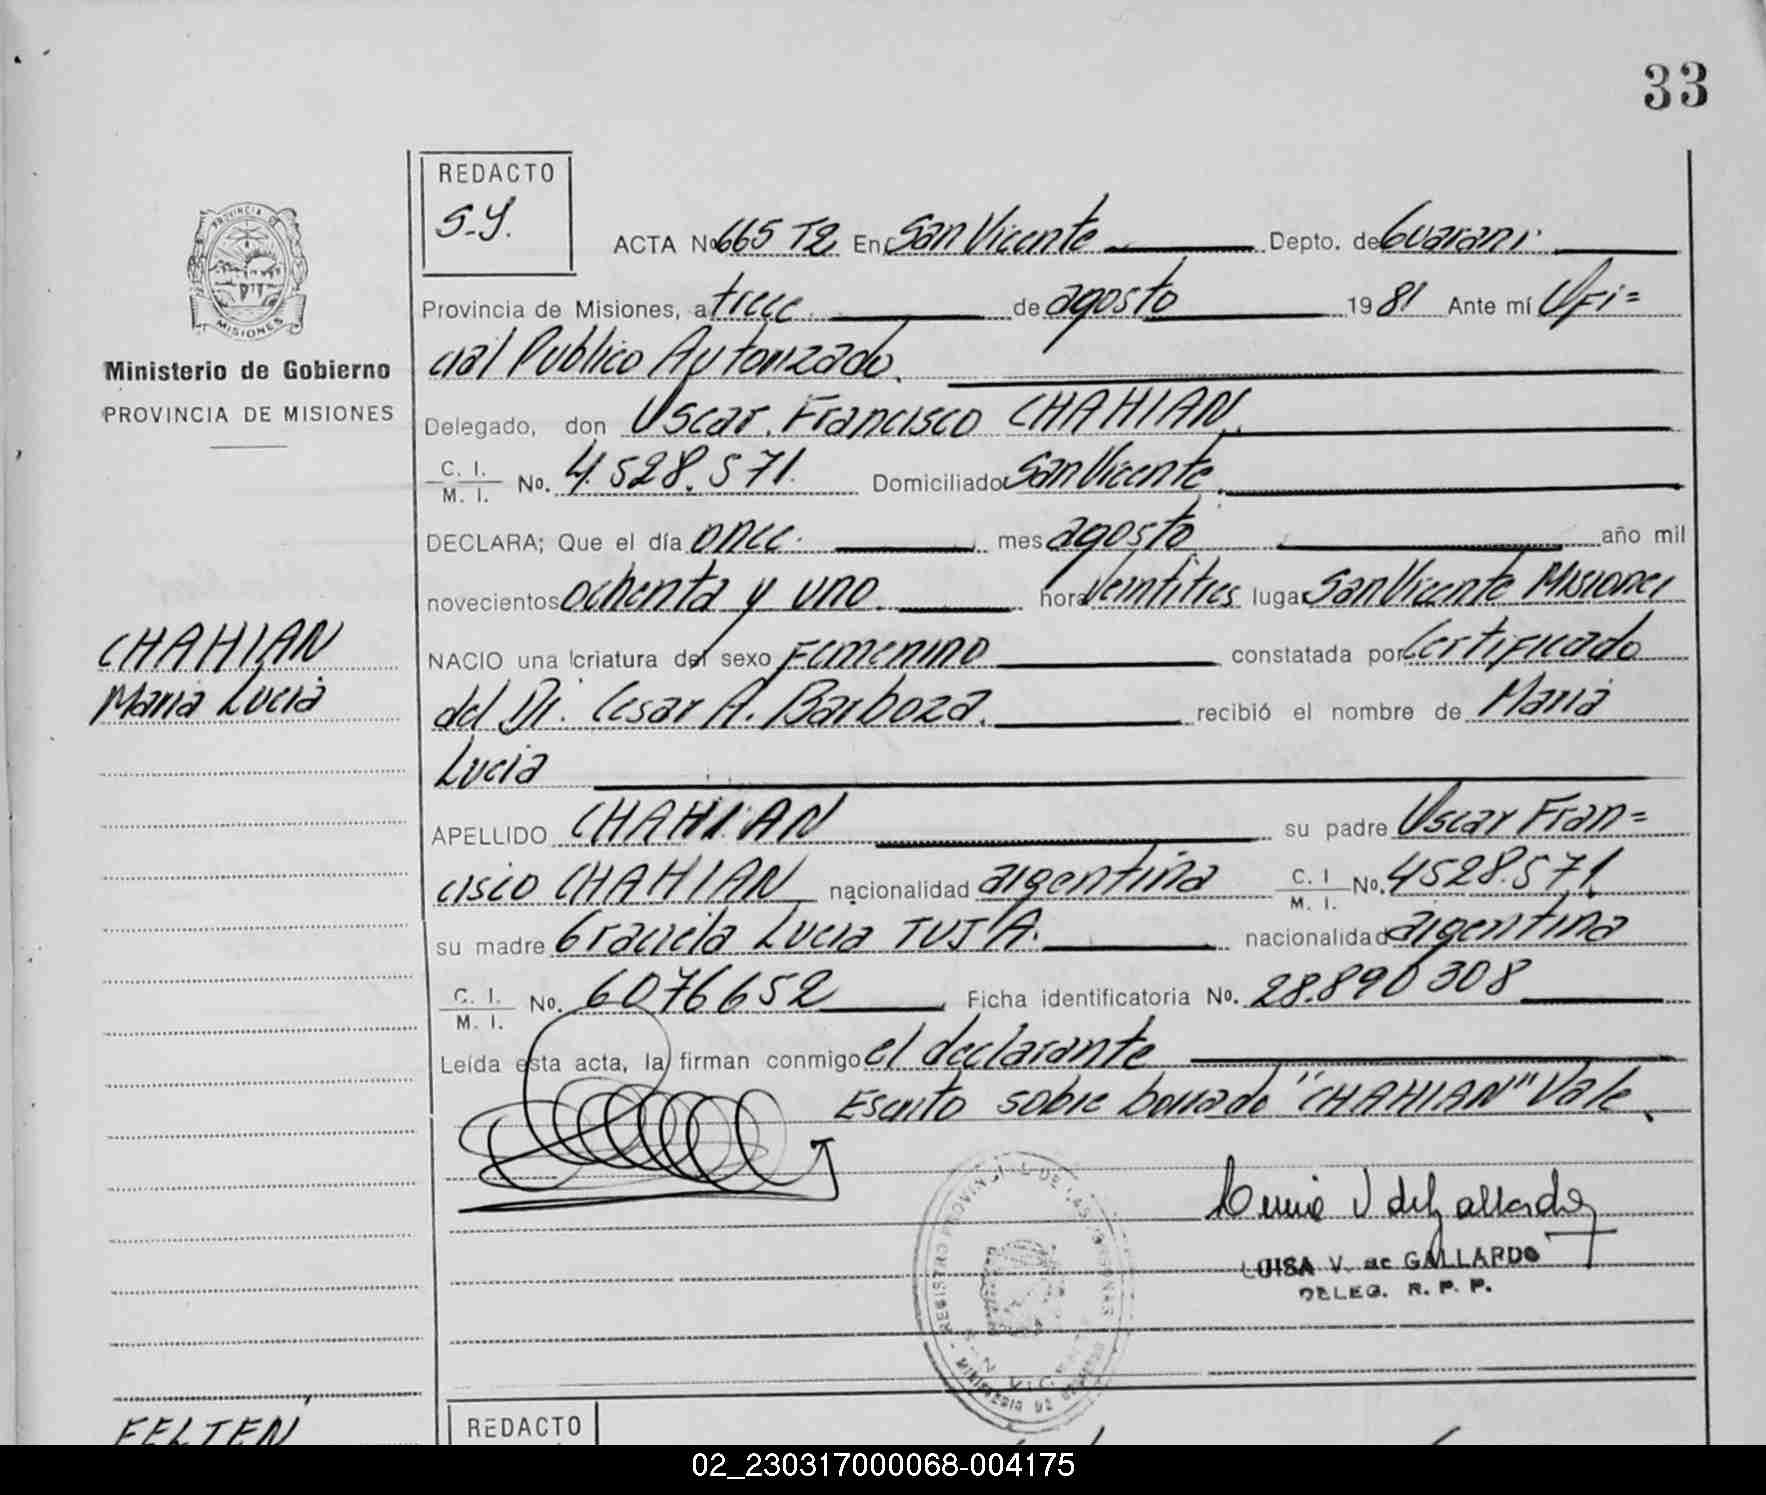 33
REDACTO
S.Y.
ACTA No 665 T2 En San Vicente Depto. de Guarani
Provincia de Misiones, a trece de agosto 1981 Ante mí Ofi=
cial Publico Autorizado.
Delegado, don Oscar Francisco CHAHIAN
C. I.
M. I. No. 4.528.571. Domiciliado San Vicente
DECLARA; Que el día once mes agosto año mil
novecientos ochenta y uno hora veintitres lugar San Vicente Misiones
NACIO una criatura del sexo Femenino constatada por Certificado
del Dr. Cesar A. Barboza. recibió el nombre de Maria
Lucia
APELLIDO CHAHIAN su padre Oscar Fran=
cisco CHAHIAN nacionalidad argentina C. I
M. I. No. 4528.571
su madre Graciela Lucia TUJA. nacionalidad argentina
C. I.
M. I. No. 6076652 Ficha identificatoria No. 28.890308
Leída esta acta, la firman conmigo el declarante
Escrito sobre borrado "CHAHIAN" Vale.
LUISA V. de GALLARDO
DELEG. R. P. P.
REGISTRO PROVINCIAL DE LAS PERSONAS
PROVINCIA DE
MISIONES
Ministerio de Gobierno
PROVINCIA DE MISIONES
CHAHIAN
Maria Lucia
FELTEN
REDACTO
02_230317000068-004175